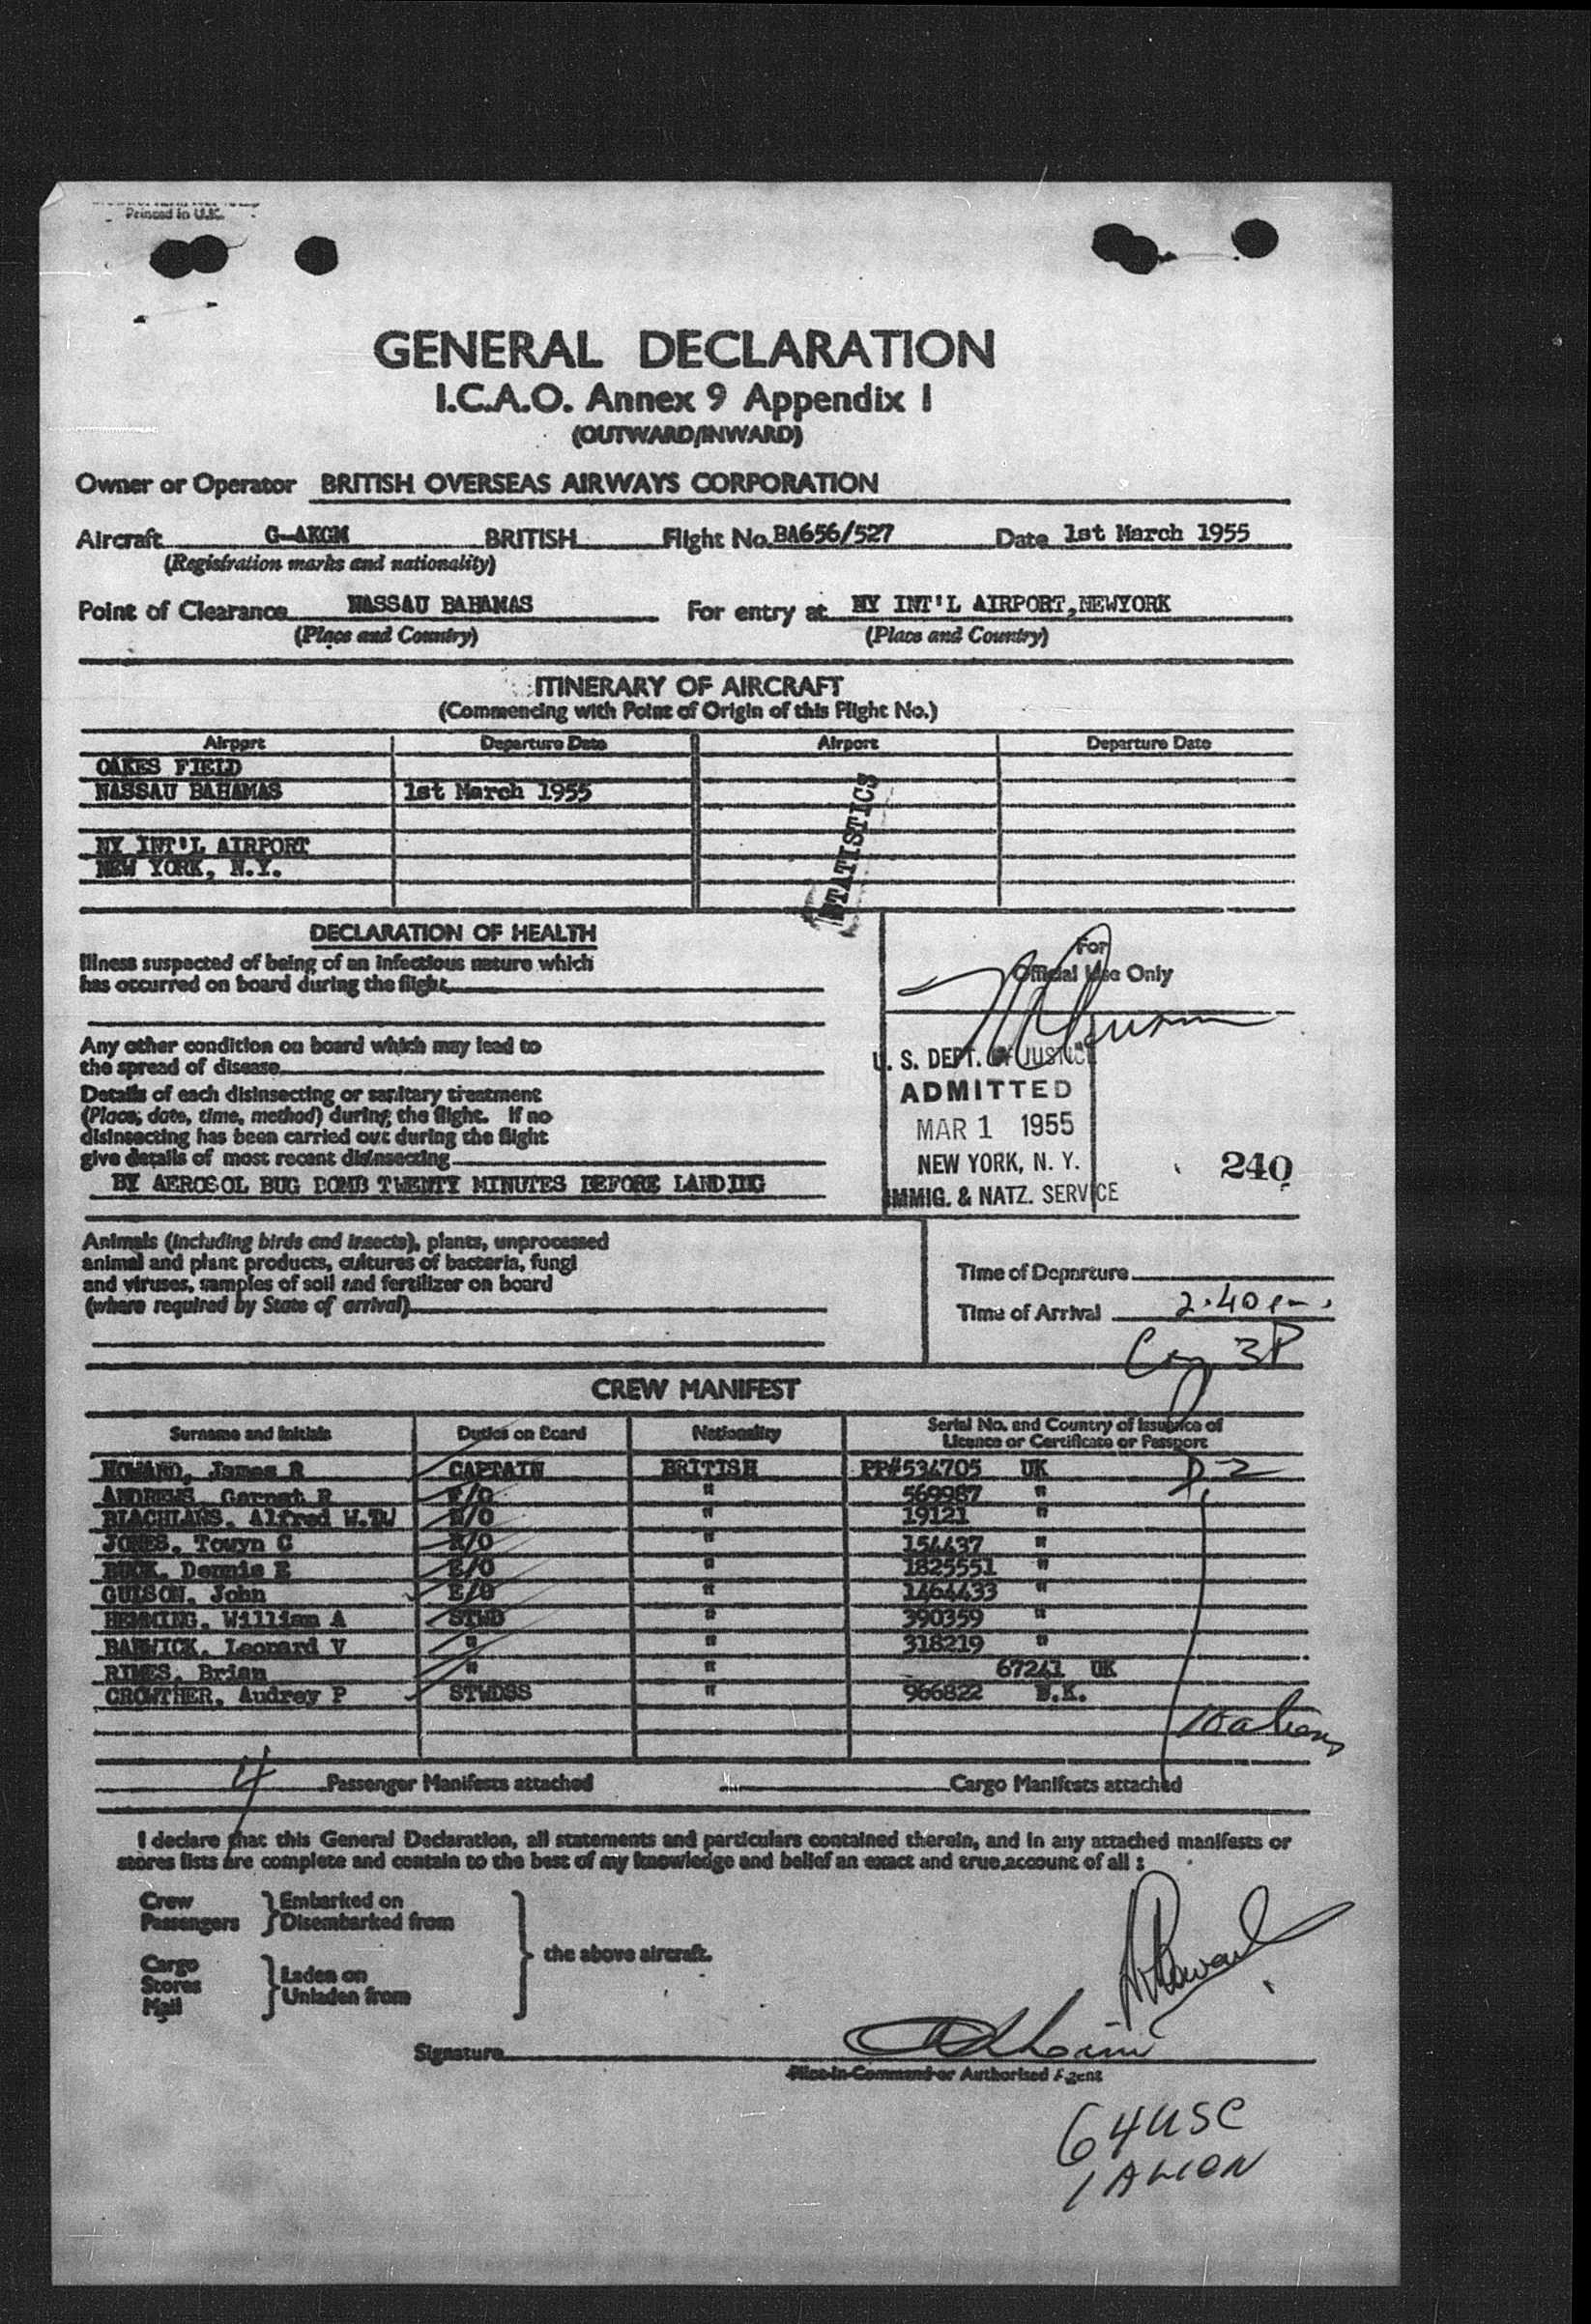 Printed in U.K.
GENERAL DECLARATION
I.C.A.O. Annex 9 Appendix I
(OUTWARD/INWARD)
Owner or Operator BRITISH OVERSEAS AIRWAYS CORPORATION
Aircraft G-AKGM BRITISH Flight No. BA656/527 Date 1st March 1955
(Registration marks and nationality)
Point of Clearance NASSAU BAHAMAS For entry at NY INT'L AIRPORT, NEWYORK
(Place and Country) (Place and Country)
ITINERARY OF AIRCRAFT
(Commencing with Point of Origin of this Flight No.)
Airport Departure Date Airport Departure Date
OAKES FIELD
NASSAU BAHAMAS 1st March 1955
STATISTICS
NY INT'L AIRPORT
NEW YORK, N.Y.
DECLARATION OF HEALTH
Illness suspected of being of an infectious nature which
has occurred on board during the flight
Any other condition on board which may lead to
the spread of disease
Details of each disinsecting or sanitary treatment
(Place, date, time, method) during the flight. If no
disinsecting has been carried out during the flight
give details of most recent disinsecting
BY AEROSOL BUG BOMB TWENTY MINUTES BEFORE LANDING
For
Official Use Only
U. S. DEPT. OF JUSTICE
ADMITTED
MAR 1 1955
NEW YORK, N. Y.
IMMIG. & NATZ. SERVICE
240
Animals (including birds and insects), plants, unprocessed
animal and plant products, cultures of bacteria, fungi
and viruses, samples of soil and fertilizer on board
(where required by State of arrival)
Time of Departure
Time of Arrival 2.40 p-.
3P
CREW MANIFEST
Surname and Initials Duties on Board Nationality Serial No. and Country of Issuance of
Licence or Certificate or Passport
HOWARD, James R CAPTAIN BRITISH PP#534705 UK
ANDREWS, Garnet R F/O " 569987 "
Alfred W. N/O " 19121 "
JONES, Towyn C R/O " 154437 "
BUCK, Dennis E E/O " 1825551 "
GUISON, John E/O " 1464433 "
HEMMING, William A STWD " 390359 "
BARWICK, Leonard V " " 318219 "
RIMES, Brian " " 67241 UK
CROWTHER, Audrey P STWDSS " 966822 U.K.
4 Passenger Manifests attached Cargo Manifests attached
I declare that this General Declaration, all statements and particulars contained therein, and in any attached manifests or
stores lists are complete and contain to the best of my knowledge and belief an exact and true account of all :
Crew } Embarked on
Passengers } Disembarked from
the above aircraft.
Cargo
Stores } Laden on
Mail } Unladen from
Signature
Pilot-in-Command or Authorised Agent
64 USC
1 ALIEN